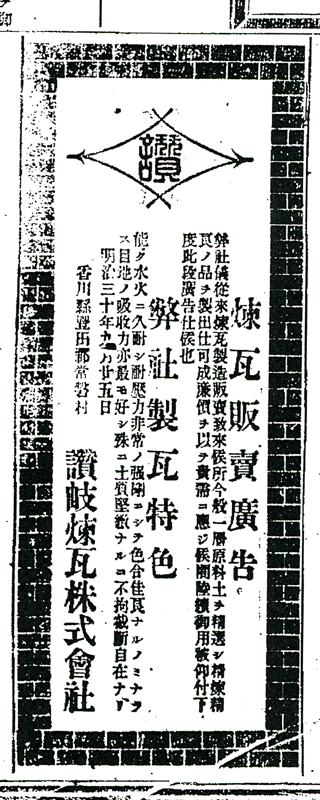 讃
煉瓦販賣廣告。
弊社儀從來煉瓦製造販賣致來候所今般一層原料土ヲ精選シ精煉精
良ノ品ヲ製出仕可成廉價ヲ以テ貴需ニ應ジ候間陸續御用被仰付下
度此段廣告仕候也
弊社製瓦特色
能ク水火ニ久耐シ耐壓力非常ノ强剛ニシテ色合佳良ナルノミナラ
ス目地ノ吸收力亦最モ好シ殊ニ土質堅緻ナルニ不拘截斷自在ナリ
明治三十年九月廿五日
香川縣豐田郡常磐村
讃岐煉瓦株式會社